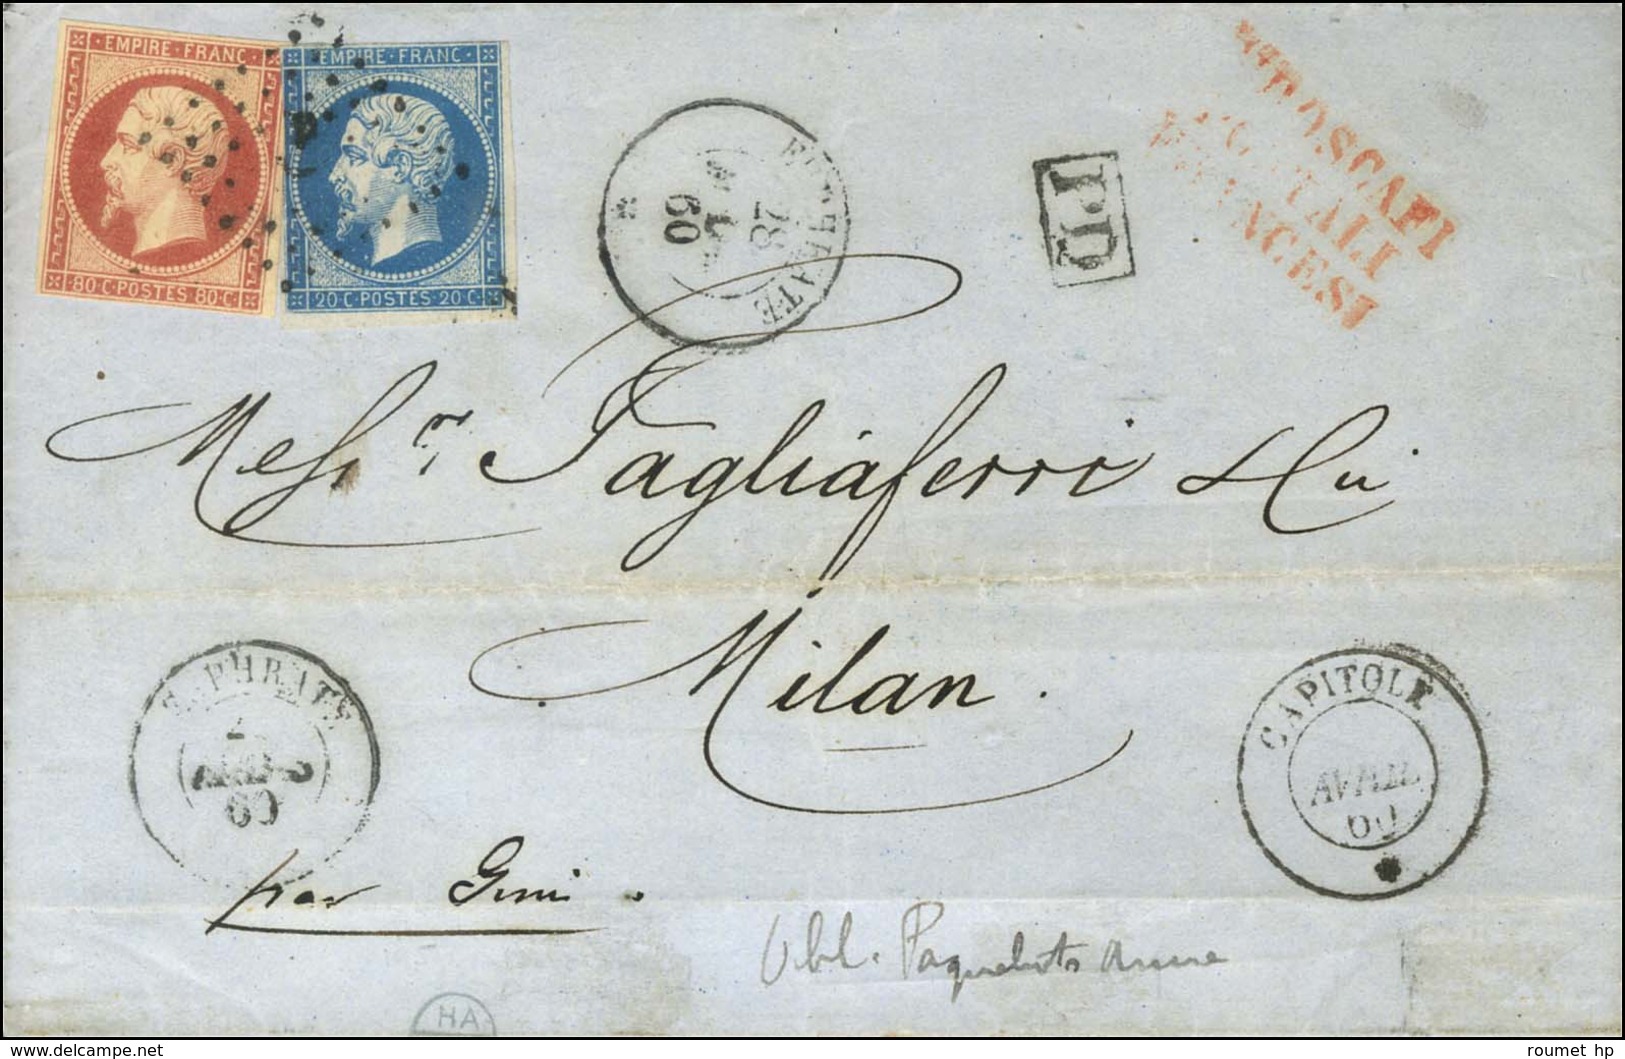 EMPIRE · FRANC
80 C · POSTES 80 C
EMPIRE · FRANC
20 C · POSTES 20 C
EUPHRATE
28
60
PD
POSCAFI
POSTALI
FRANCESI
Messrs Tagliaferri & Cie
Milan.
EUPHRATE
60
CAPITOLE
AVRIL
60
par
Obl. Paquebots
HA
delcampe.net
roumet hp